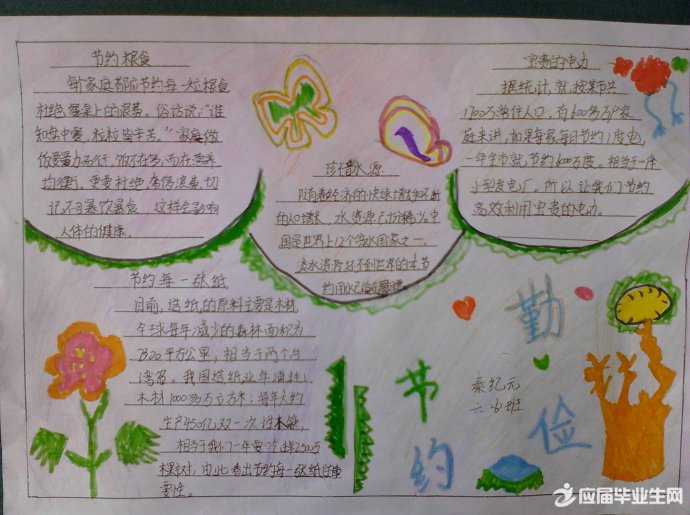 节约粮食
每个家庭都应节约每一粒粮食
杜绝餐桌上的浪费。俗话说:“谁
知盘中餐,粒粒皆辛苦。”家庭做
饭要量力而行,饱不在多,而在营养
均衡。更要杜绝
记不可暴饮暴食 这样会影响
人体的健康。
珍惜水源
随着经济的快速增长
的人口增长,水资源
国是世界上12个贫水国家之一,
淡水资源还不到世界的
约用水
宝贵的电力
据统计,就按
1700万常住人口,有600多万户家
庭来讲,如果每家每日节约1度电,
一年全市就节约600万度,相当于一座
小型发电厂。所以让我们节约
高效利用宝贵的电力。
节约每一张纸
目前,造纸的原料主要是木材
全球每年减少的森林面积为
平方公里,相当于两个
湾省。我国造纸业年消耗
木材1000多万立方米,每年大约
生产450亿双一次性木筷,
相当于我们一年要
棵树,由此看出节约每一张纸的重
要性。
勤俭
节约
秦纪元
六
班
应届毕业生网